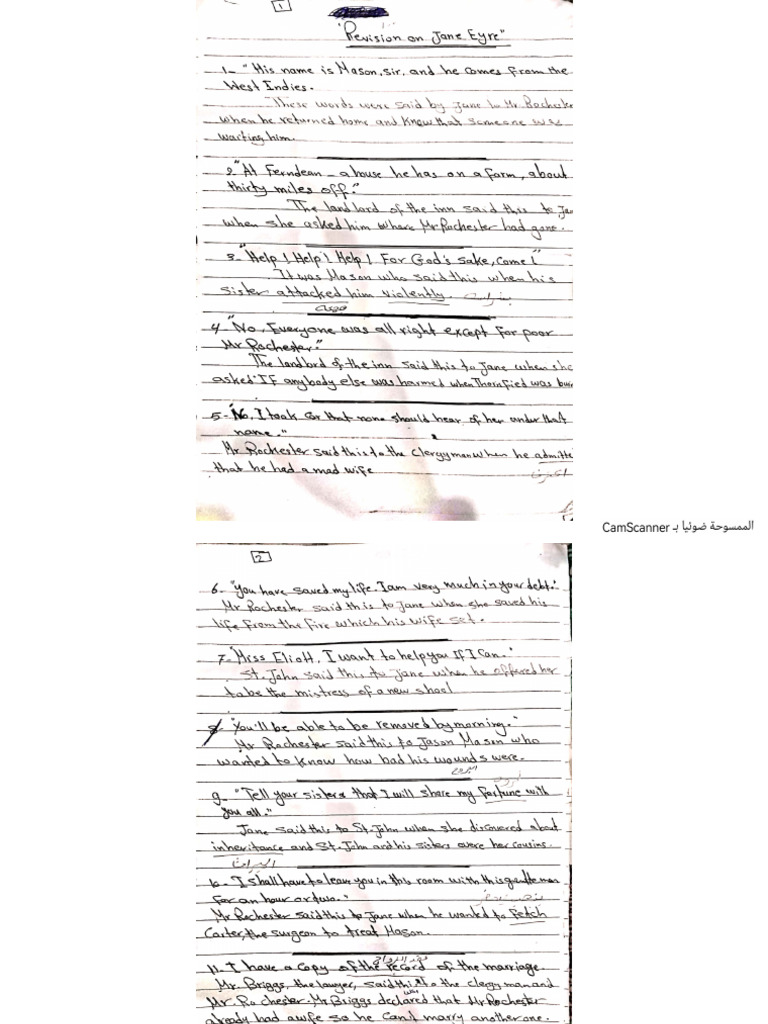 1
"Revision on Jane Eyre"
1- "His name is Mason, sir, and he comes from the
West Indies.
These words were said by Jane to Mr Rocheste
when he returned home and know that someone was
waiting him.
2- "At Ferndean - a house he has on a farm, about
thirty miles off."
The landlord of the inn said this to Jan
when she asked him where Mr Rochester had gone.
3- "Help! Help! Help! For God's sake, come!"
It was Mason who said this when his
sister attacked him violently.
4- "No. Everyone was all right except for poor
Mr Rochester."
The landlord of the inn said this to Jane when she
asked "If anybody else was harmed when Thornfied was bur
5- "No, I took car that none should hear of her under that
name."
Mr Rochester said this to the clergyman when he admitte
that he had a mad wife
الممسوحة ضوئيا بـ CamScanner
2
6- "You have saved my life. I am very much in your debt."
Mr Rochester said this to Jane when she saved his
life from the fire which his wife set.
7- "Miss Eliott, I want to help you If I can."
St. John said this to Jane when he offered her
to be the mistress of a new shool
8- "You'll be able to be removed by morning."
Mr Rochester said this to Jason Mason who
wanted to know how bad his wounds were.
9- "Tell your sisters that I will share my fortune with
you all."
Jane said this to St. John when she discovered about
inheritance and St. John and his sisters were her cousins.
الميراث
10- "I shall have to leave you in this room with this gentleman
for an hour or two."
Mr Rochester said this to Jane when he wanted to fetch
Carter, the surgeon to treat Mason.
11- I have a copy of the record of the marriage.
Mr. Briggs, the lawyer, said this to the clergyman and
Mr Rochester. Mr Briggs declared that Mr Rochester
already had a wife so he can't marry another one.